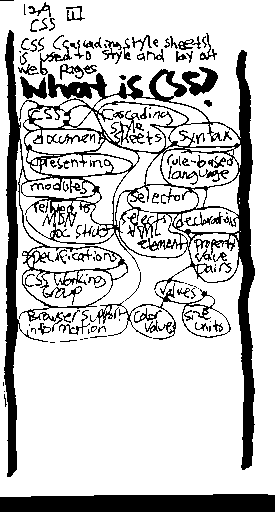 12.9
CSS 1
CSS (cascading style sheets)
is used to style and lay out
web pages
What is CSS?
CSS
Cascading
style
sheets
document
Syntax
presenting
rule-based
language
modules
selector
related to
MDN
doc struct
selects
HTML
element
declarations
property
value
pairs
specifications
CSS Working
Group
values
Browser support
information
color
values
size
units